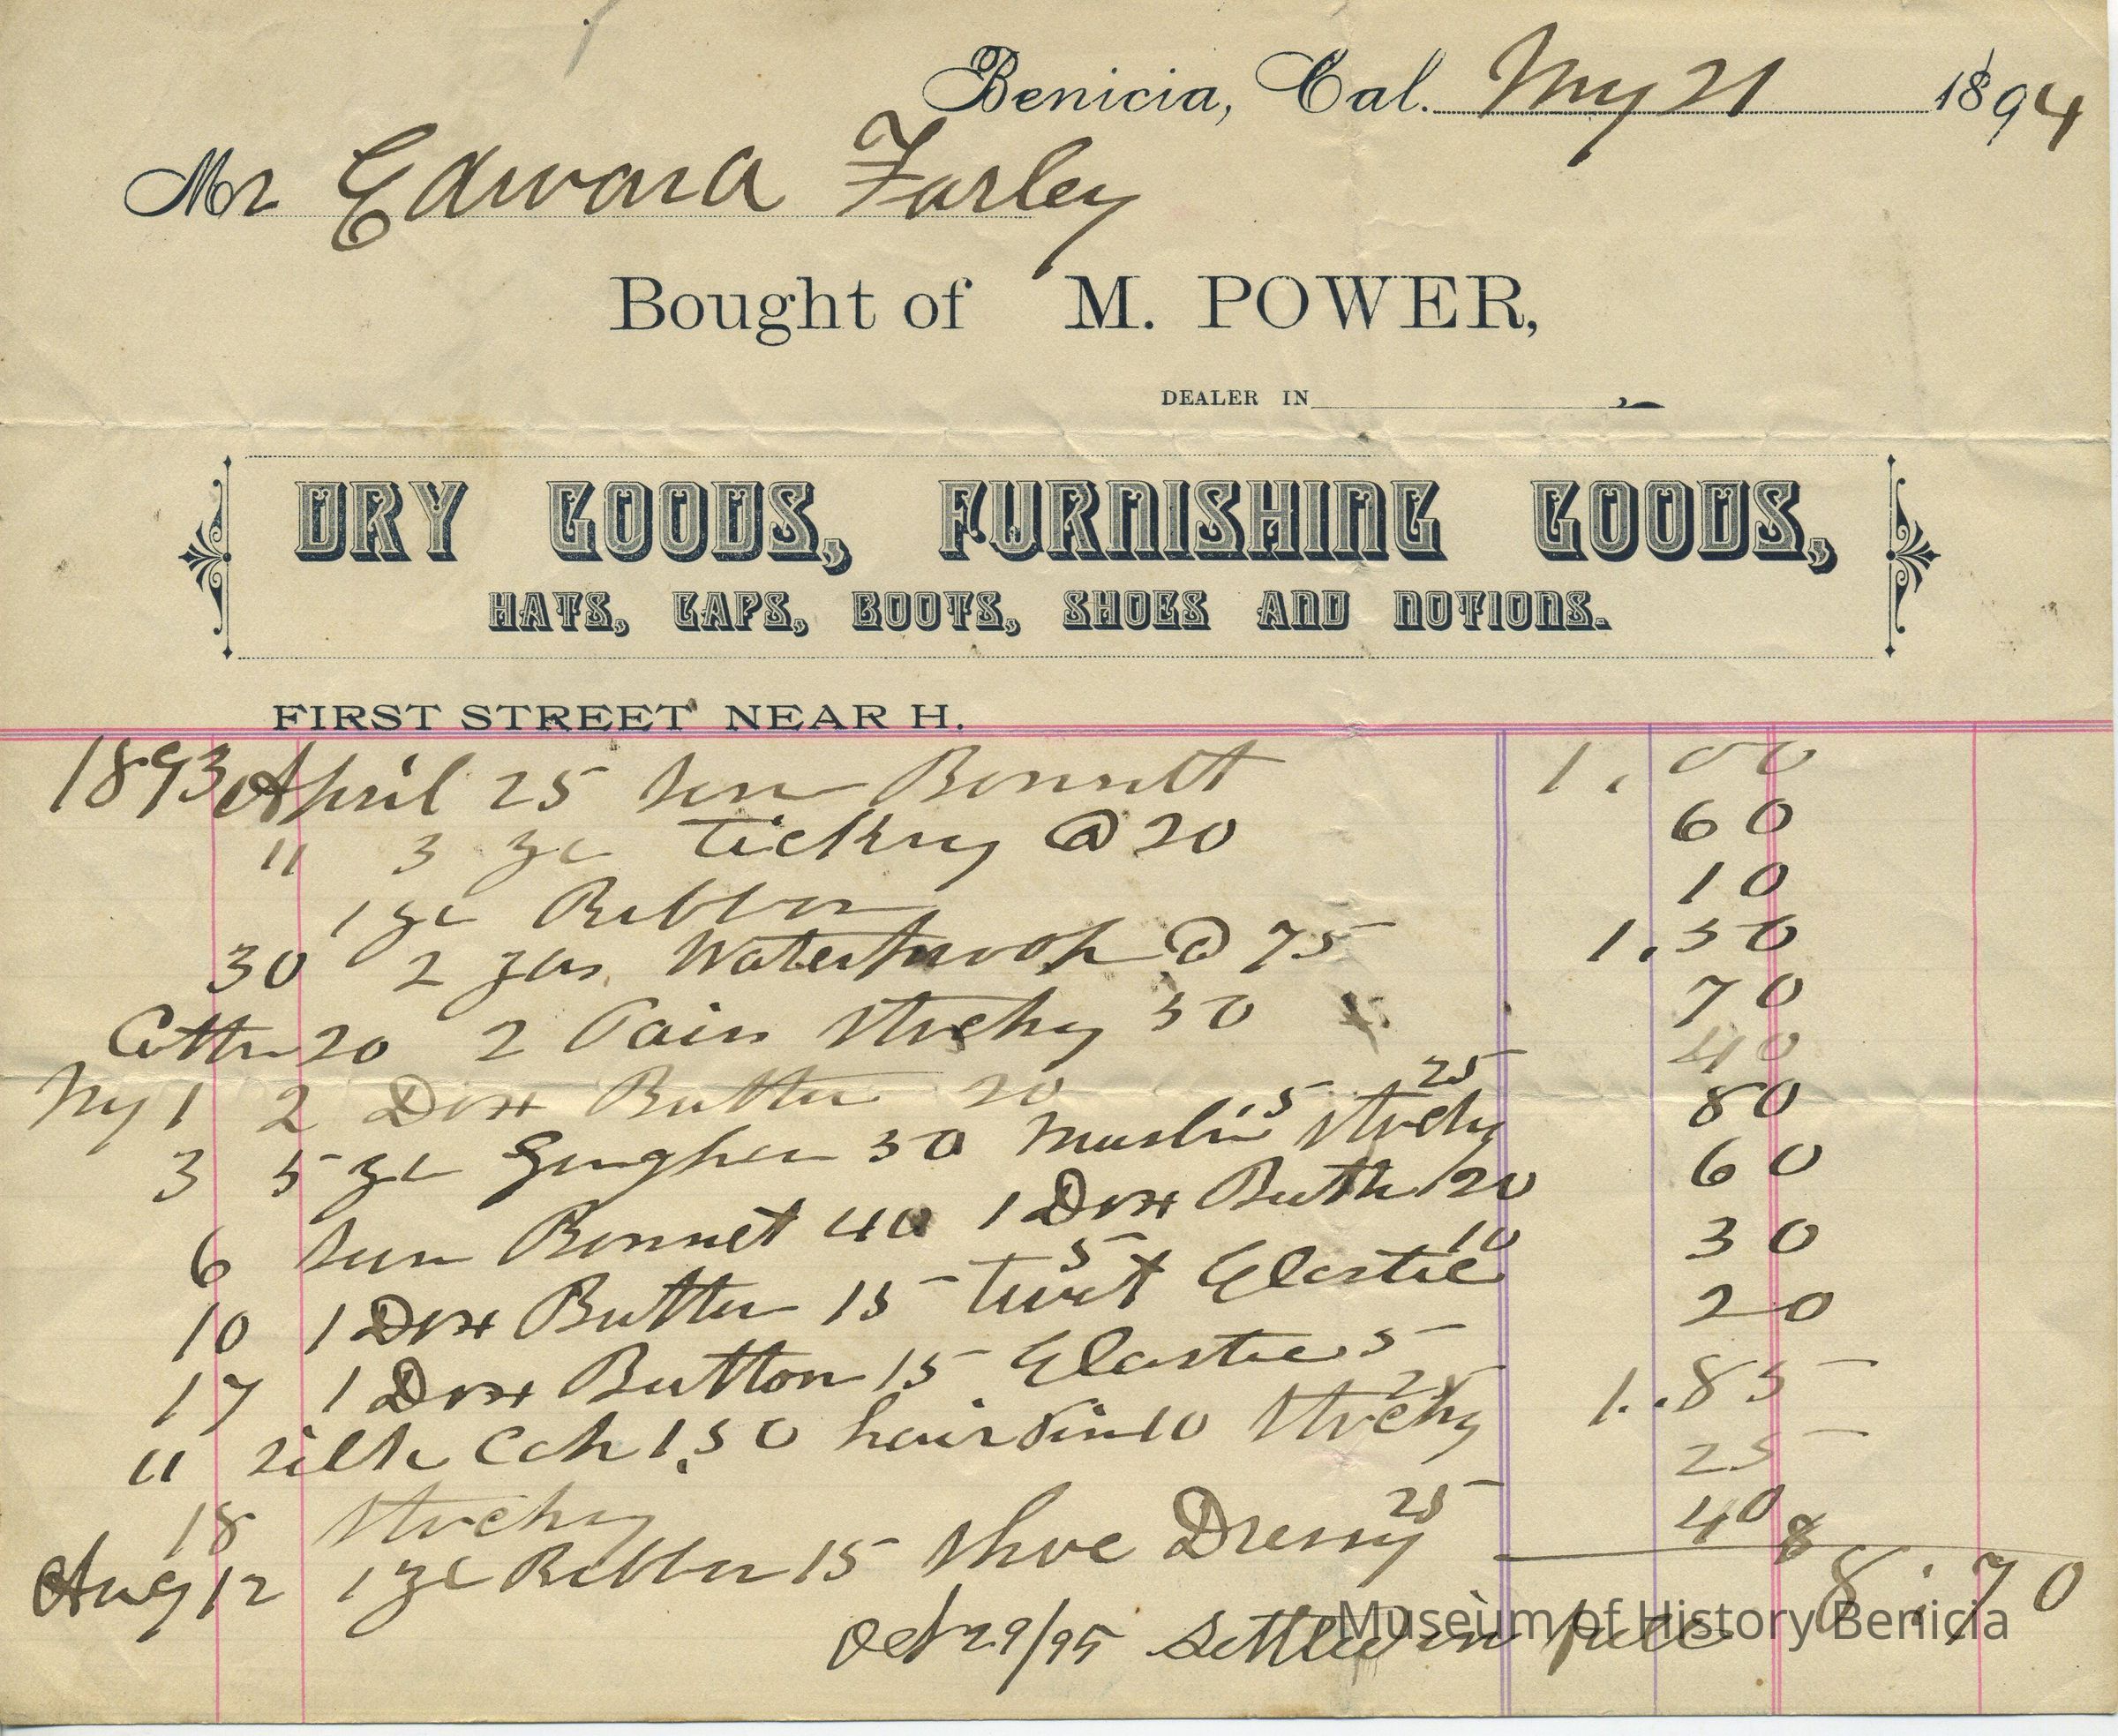 Benicia, Cal. My 21 1894
Mr Edward Farley
Bought of M. POWER,
DEALER IN
DRY GOODS, FURNISHING GOODS,
HATS, CAPS, BOOTS, SHOES AND NOTIONS.
FIRST STREET NEAR H.
1893 April 25 Sun Bonnett 1.00
" 3 yd Ticking @ 20 60
1 yd Ribbon 10
30 2 yds Waterproof @ 75 1.50
Cotton 20 2 Pair Stockg 50 70
My 1 2 Doz Button 20 40
3 5 yd Gingham 50 Muslin 5 Stockg 25 80
6 Sun Bonnet 40 1 Doz Button 20 60
10 1 Doz Button 15 Twist 5 Elastic 10 30
17 1 Doz Button 15 Elastic 5 20
" Silk 1.50 hair Pin 10 Stockg 25 1.85
18 Stockg 25
Aug 12 1 yd Ribbon 15 Shoe Dressg 25 40
8.70
Oct 29/95 Settled in full
Museum of History Benicia